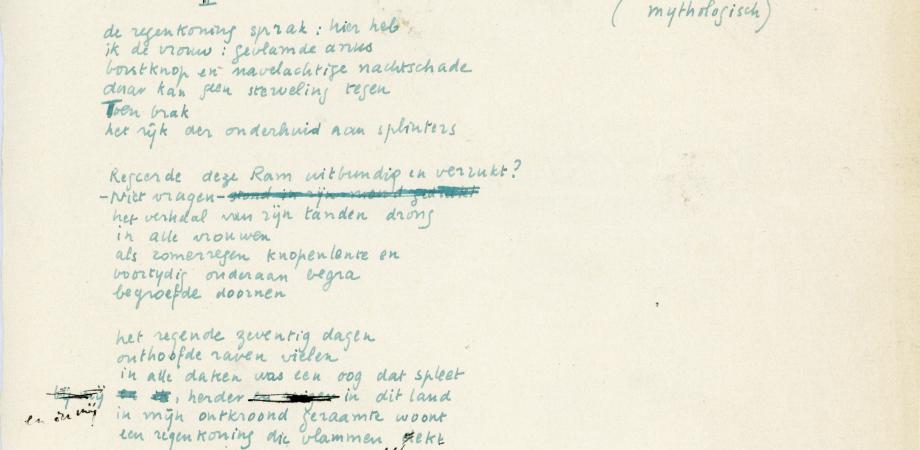 II
(mythologisch)
de regenkoning sprak : hier heb
ik de vrouw : gevlamde arms
borstknop en navelachtige nachtschade
daar kan geen sterveling tegen
Toen brak
het rijk der onderhuid aan splinters
Regeerde deze Ram uitbundig en verrukt?
- Niet vragen - stond in zijn mond gedrukt
het verhaal van zijn tanden drong
in alle vrouwen
als zomerregen knopenlente en
voortijdig onderaan begra
begroefde doornen
het regende zeventig dagen
onthoofde raven vielen
in alle daken was een oog dat spleet
, herder in dit land
en in mij
in mijn ontkroond geraamte woont
een regenkoning die vlammen